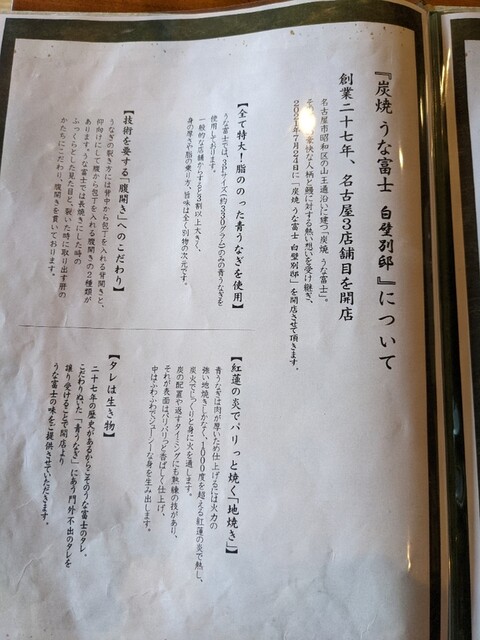 『炭焼 うな富士 白壁別邸』について
創業二十七年、名古屋3店舗目を開店
名古屋市昭和区の山王通沿いに建つ「炭焼 うな富士」。
豪快な人柄と鰻に対する熱い想いを受け継ぎ、
2021年7月24日に「炭焼 うな富士 白壁別邸」を開店させて頂きます。
【全て特大！脂ののった青うなぎを使用】
うな富士では、3Pサイズ(約330グラム)のみの青うなぎを
使用しております。
一般的な店舗からすると3割以上大きく、
身の厚さや脂の乗り方、旨味は全く別物の次元です。
【技術を要する「腹開き」へのこだわり】
うなぎの裂き方には背中から包丁を入れる背開きと、
仰向けにして腹から包丁を入れる腹開きの2種類が
あります。うな富士では長焼きにした時の
ふっくらとした見た目と、裂いた時に取り出す肝の
かたちにこだわり、腹開きを貫いております。
【紅蓮の炎でパリっと焼く「地焼き」】
青うなぎは肉が厚いため仕上げるには火力の
強い地焼きしかなく、1000度を超える紅蓮の炎で熱し、
炭火でじっくりと身に火を通します。
炭の配置や返すタイミングにも熟練の技があり、
それが表面はパリパリっと香ばしく仕上げ、
中はふわふわでジューシーな身を生み出します。
【タレは生き物】
二十七年の歴史があるからこそのうな富士のタレ。
こだわりぬいた「青うなぎ」にあう門外不出のタレを
譲り受けることで開店より
うな富士の味をご提供させていただきます。